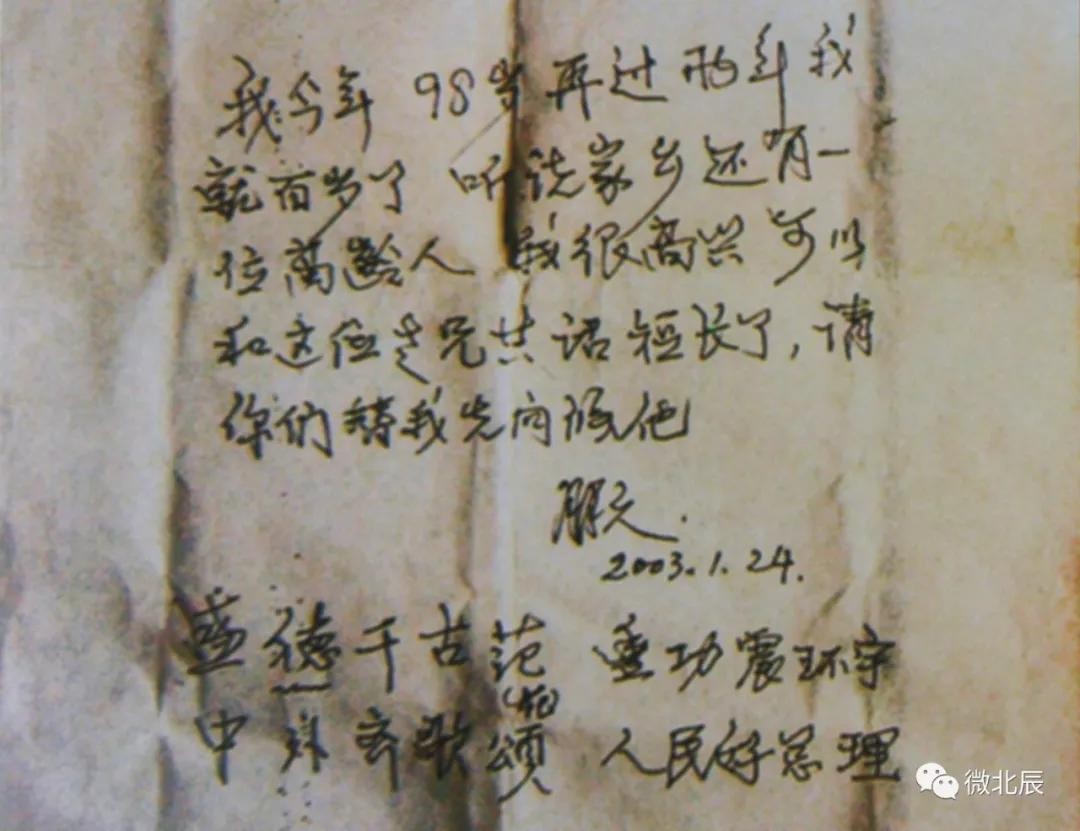 我今年 98岁再过两年我
就百岁了 听说家乡还有一
位高龄人 我很高兴 可以
和这位老兄共话短长了，请
你们替我先问候他
2003.1.24.
盛德千古范 垂功震环宇
(范)
中外齐歌颂 人民好总理
微北辰